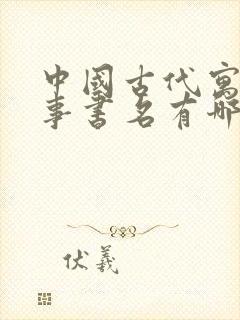 中國古代寓
事書名有哪
伏羲